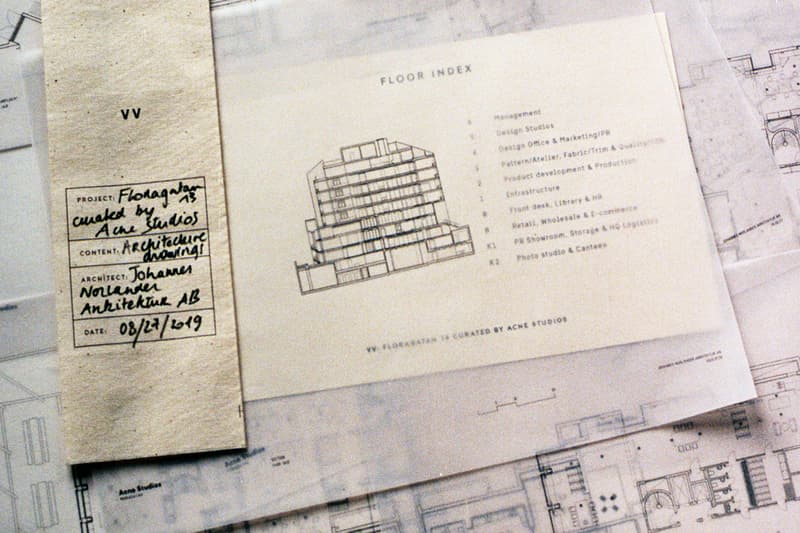 VV
PROJECT: Floragatan 13
curated by
Acne Studios
CONTENT: Architecture
drawing!
ARCHITECT: Johannes
Norlander
Arkitektur AB
DATE: 08/27/2019
FLOOR INDEX
6 Management
5 Design Studios
4 Design Office & Marketing/PR
3 Pattern/Atelier, Fabric/Trim &
2 Product development & Production
1 Infrastructure
0 Front desk, Library & HR
0 Retail, Wholesale & E-commerce
K1 PR Showroom, Storage & HQ Logistics
K2 Photo studio & Canteen
VV: FLORAGATAN 13 CURATED BY ACNE STUDIOS
Acne Studios